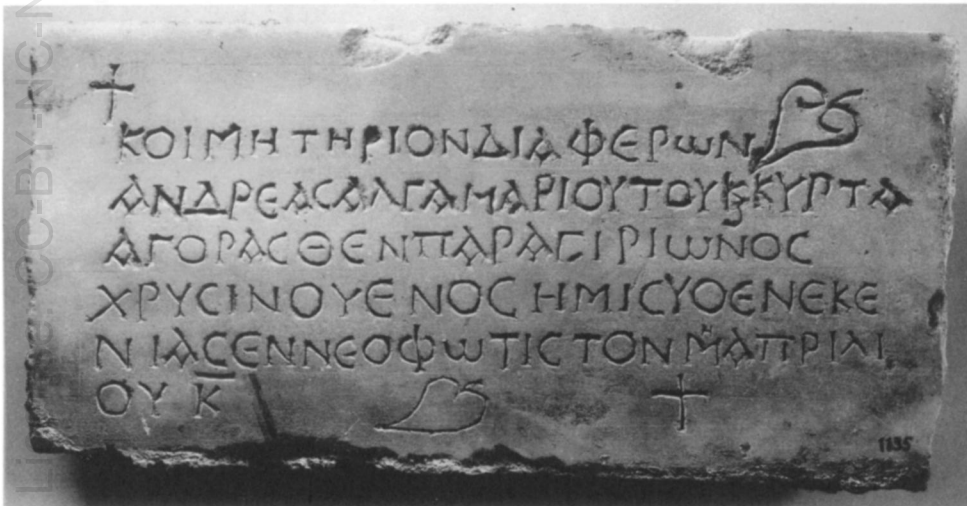 ΚΟΙΜΗΤΗΡΙΟΝΔΙΑΦΕΡΩΝ
ΑΝΔΡΕΑCΑΛΓΑΜΑΡΙΟΥΤΟΥϗΚΥΡΤΑ
ΑΓΟΡΑCΘΕΝΠΑΡΑCΙΡΙΩΝΟC
ΧΡΥCΙΝΟΥΕΝΟCΗΜΙCΥΟΕΝΕΚΕ
ΝΙΑCΕΝΝΕΟΦΩΤΙCΤΟΝΜΗΑΠΡΙΛΙ
ΟΥ Κ
CC-BY-NC-N